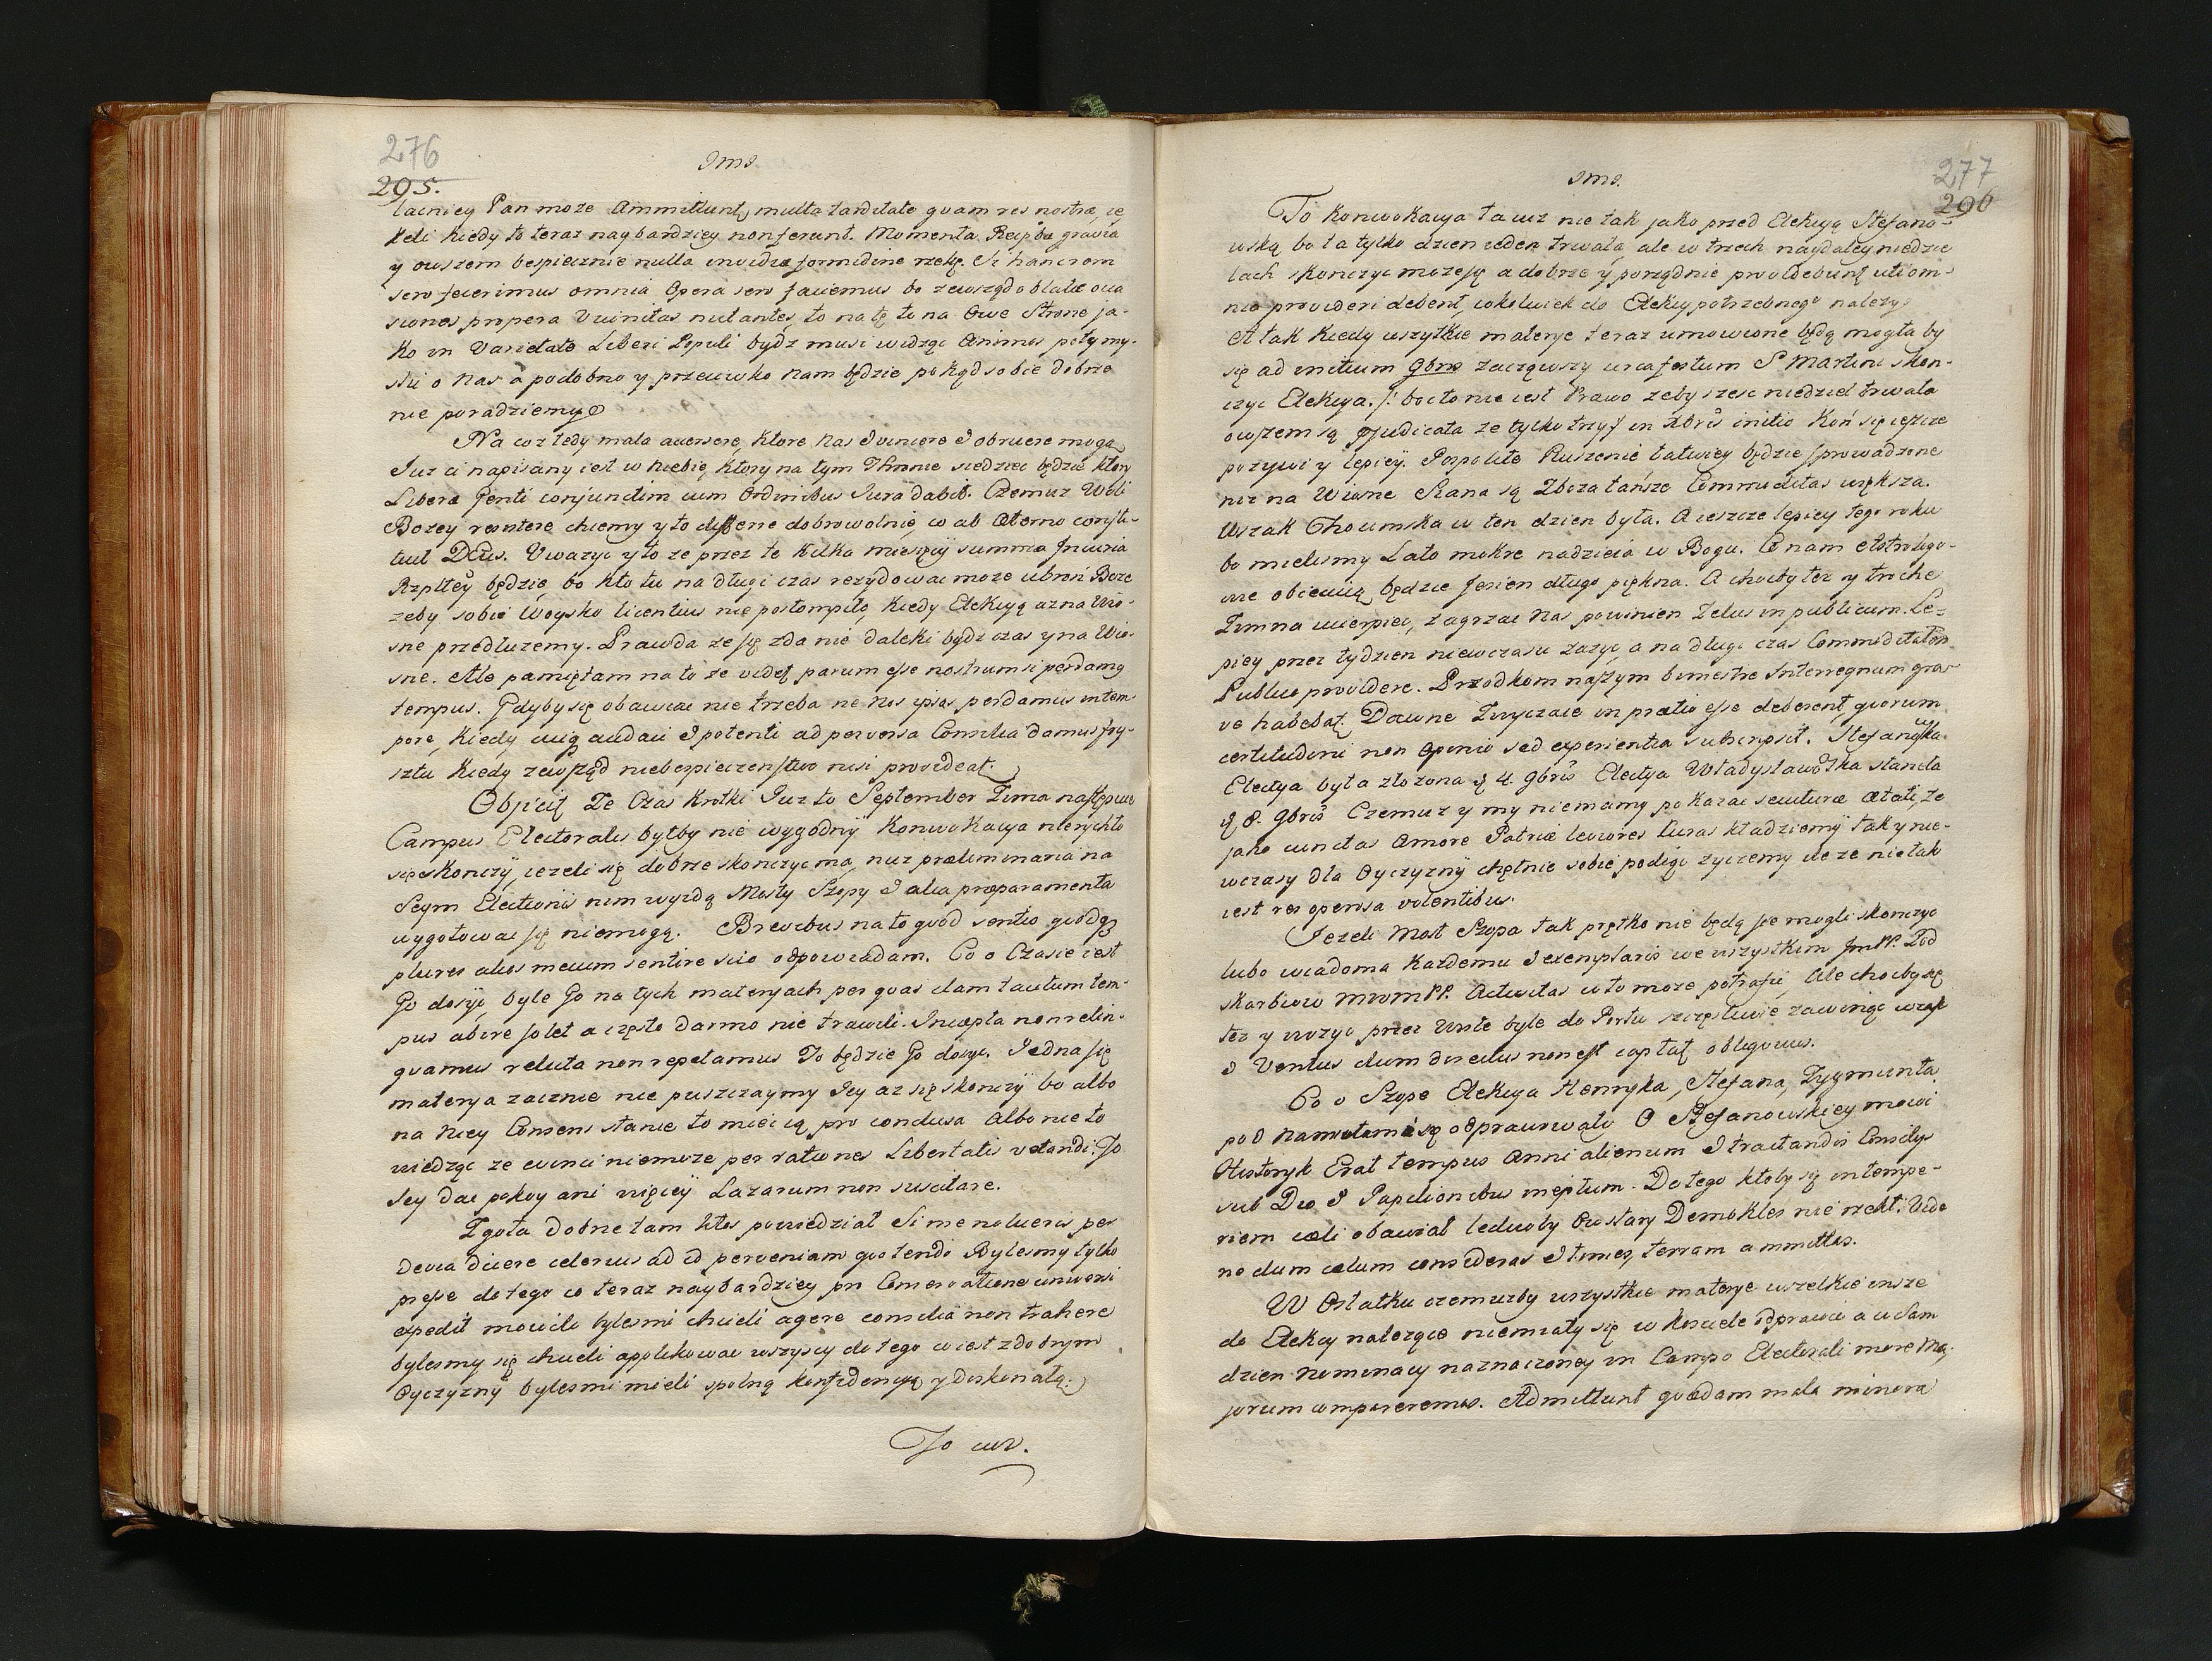 276
295.
Ims
łacniey Pan może Ammittunt multa tarditate quam res nostræ, ie
żeli kiedy to teraz naybardziey non ferunt. Momenta Reipbæ gravia
y owszem bespiecznie nulla invidiæ formidine rzekę. Si hanc rem
sero fecerimus omnia Opera sero faciemus bo zewsząd oblatæ occa
siones propera Vicinitas nutantes, to na tę to na Owe Stronę ja-
ko in Varietate Liberi Populi bydz musi widząc Animos poty my-
śli o Nas a podobno y przeciwko nam będzie pokąd sobie dobrze
nie poradziemy
Na coz tedy mala accersere, ktore Nas Invincere I obruere mogą
Juz ci napisany iest w Niebie, ktory na tym Thronie siedziec będzie ktory
Liberæ Genti conjunctim cum Ordinibus Jura dabit. Czemuz Woli
Bozey resistere chcemy y to differre dobrowolnie, co ab Æterno consti-
tuit Deus. Uwazyc y to ze przez te kilka miesięcy summa Incuria
Rzpltey będzie, bo kto tu na długi czas rezydowac moze ubroń Boze
zeby sobie Woysko licentius nie postompiło, kiedy Elekcyą az na Wio-
sne przedłuzemy. Prawda ze się zda nie daleki bydz czas y na Wio-
sne. Ale pamiętam na to ze videt parum esse nostrum si perdamq
tempus. Gdyby się obawiac nie trzeba ne Nos ipsos perdamus in tem-
pore, kiedy audaci I potenti ad perversa Consilia damus fry-
sztu kiedy zewsząd niebespieczenstwo nisi provideat.
Objicit Ze Czas krotki Juz to September Zima następuie
Campus Electoralis byłby nie wygodny Konwokacya nierychło
się skonczy, iezeli się dobrze skonczyc ma, nuz præliminaria na
Seym Electionis nim wyidą Mosty Szopy I alia præparamenta
wygotowac się niemogą. Brevibus na to quod sentio quodq3
plures alios mecum sentire scio odpowiadam. Co o Czasie iest
Go dosyc, byle Go na tych materyach per quas clam tacitum tem-
pus abire solet a często darmo nie trawili. Incepta non relin-
quamus relicta non repetamus To będzie Go dosyc. Jedna się
materya zacznie nie puszczaymy Jey az się skonczy bo albo
na Niey Consens stanie to mieć ią pro conclusa Albo nie to
widząc ze evinci niemoze per rationes Libertatis vetandi. To
Jey dac pokoy ani więcey Lazarum non suscitare.
Zgoła dobrze tam ktos powiedział Si me nolueris per
devia ducere celerius ad id perveniam quo tendo Bylesmy tylko
prosse do tego co teraz naybardziey pri Conservatione universi
expedit mowili bylesmi chcieli agere consilia non trahere
bylesmy się chcieli applikowac wszyscy do tego co iest z dobrym
Oyczyzny bylesmi mieli spolną konfidencyą y doskonałą.
To cur.
Ims.
277
296
To konwokacya ta iuz nie tak jako przed Elekcyą Stefano-
wską bo ta tylko dzien ieden trwała, ale w trzech naydaley niedzie
lach skonczyc może się a dobrze y porządnie providebunt uti om-
nia provideri debent, cokolwiek do Elekcyi potrzebnego nalezy
A tak kiedy wszytkie materye teraz umowione będą mogła by
się ad initium 9bris zacząwszy circa festum S Martini skon-
czyc Elekcya. /: bo to nie iest Prawo zeby szesc niedziel trwała
owszem są præjudicata ze tylko trzy/ in Xbris initio Koń się ieszcze
pozywi y lepiey. Pospolite Ruszenie łatwiey będzie sprowadzone
niz na Wiosne Siana są Zboza tańsze Commoditas większa.
Wszak Chocimska w ten dzien była. A ieszcze lepiey tego roku
bo mielismy Lato mokre nadzieia w Bogu. Co nam Astrologo-
wie obiecuią, będzie Jesien długo piękna. A chocby tez y troche
Zimna ucierpiec, zagrzac Nas powinien Zelus in publicum. Le-
piey przez tydzien niewczasu zazyc, a na długi czas Commoditatem
Publico providere. Przodkom naszym bimestre Interregnum gra-
ve habebat. Dawne Zwyczaie in pretio esse deberent, quorum
certitudini non opinio sed experientia subscripsit. Stefanowska
Electya była złozona d 4 9bris Electya Władysławowska stanęła
d 8. 9bris Czemuz y my niemamy pokazac secuturæ ætati, ze
jako cunctas Amore Patriæ leviores Curas kładziemy tak y nie-
wczasy dla Oyczyzny chętnie sobie podiąc zyczemy ile ze nie tak
iest res operosa volentibus.
Jezeli Most Szopa tak prętko nie będą się mogli skonczyc
lubo wiadoma Kazdemu I exemplaris we wszystkim JmPP. Pod
skarbiow MwmPP. Activitas w to moze potrafic, Ale chocby się
tez y wozyc przez Wisłe byle do Portu szczęsliwie zawinąc wszak
I Ventus dum directus non est captat obliquus.
Co o Szope Elekcya Henryka, Stefana, Zygmunta
pod Namiotami się odprawowały O Stefanowskiey mowi
Historyk Erat tempus Anni alienum I tractandis Consilys
sub Dio I Papilionibus ineptum. Do tego ktoby się intempe-
riem coeli obawiał ledwoby Ow stary Demokles nie rzekł. Vide
ne dum coelum consideras I times, terram ammittas.
W Ostatku czemuzby wszystkie materye wszelkie insze
do Elekcyi nalezące niemiały się w kosciele odprawic a w Sam
dzien Nominacyi naznaczoney in Campo Electorali more Ma-
jorum compareremus. Admittunt quædam mala minora